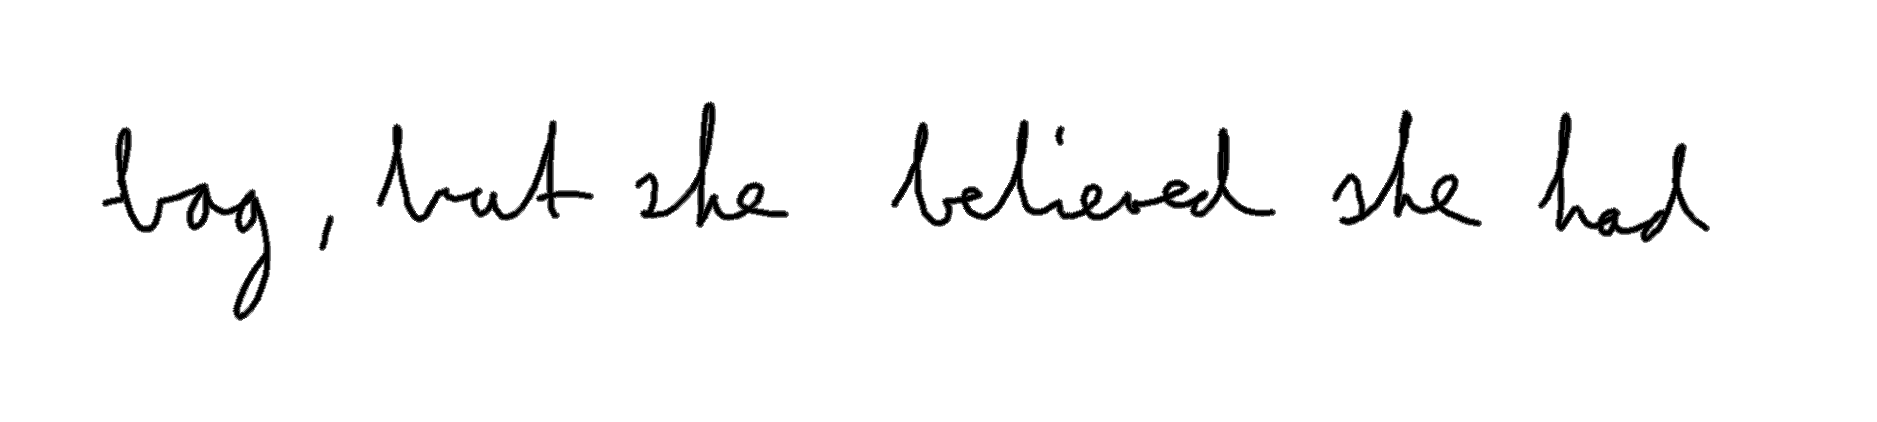 bag, but she believed she had